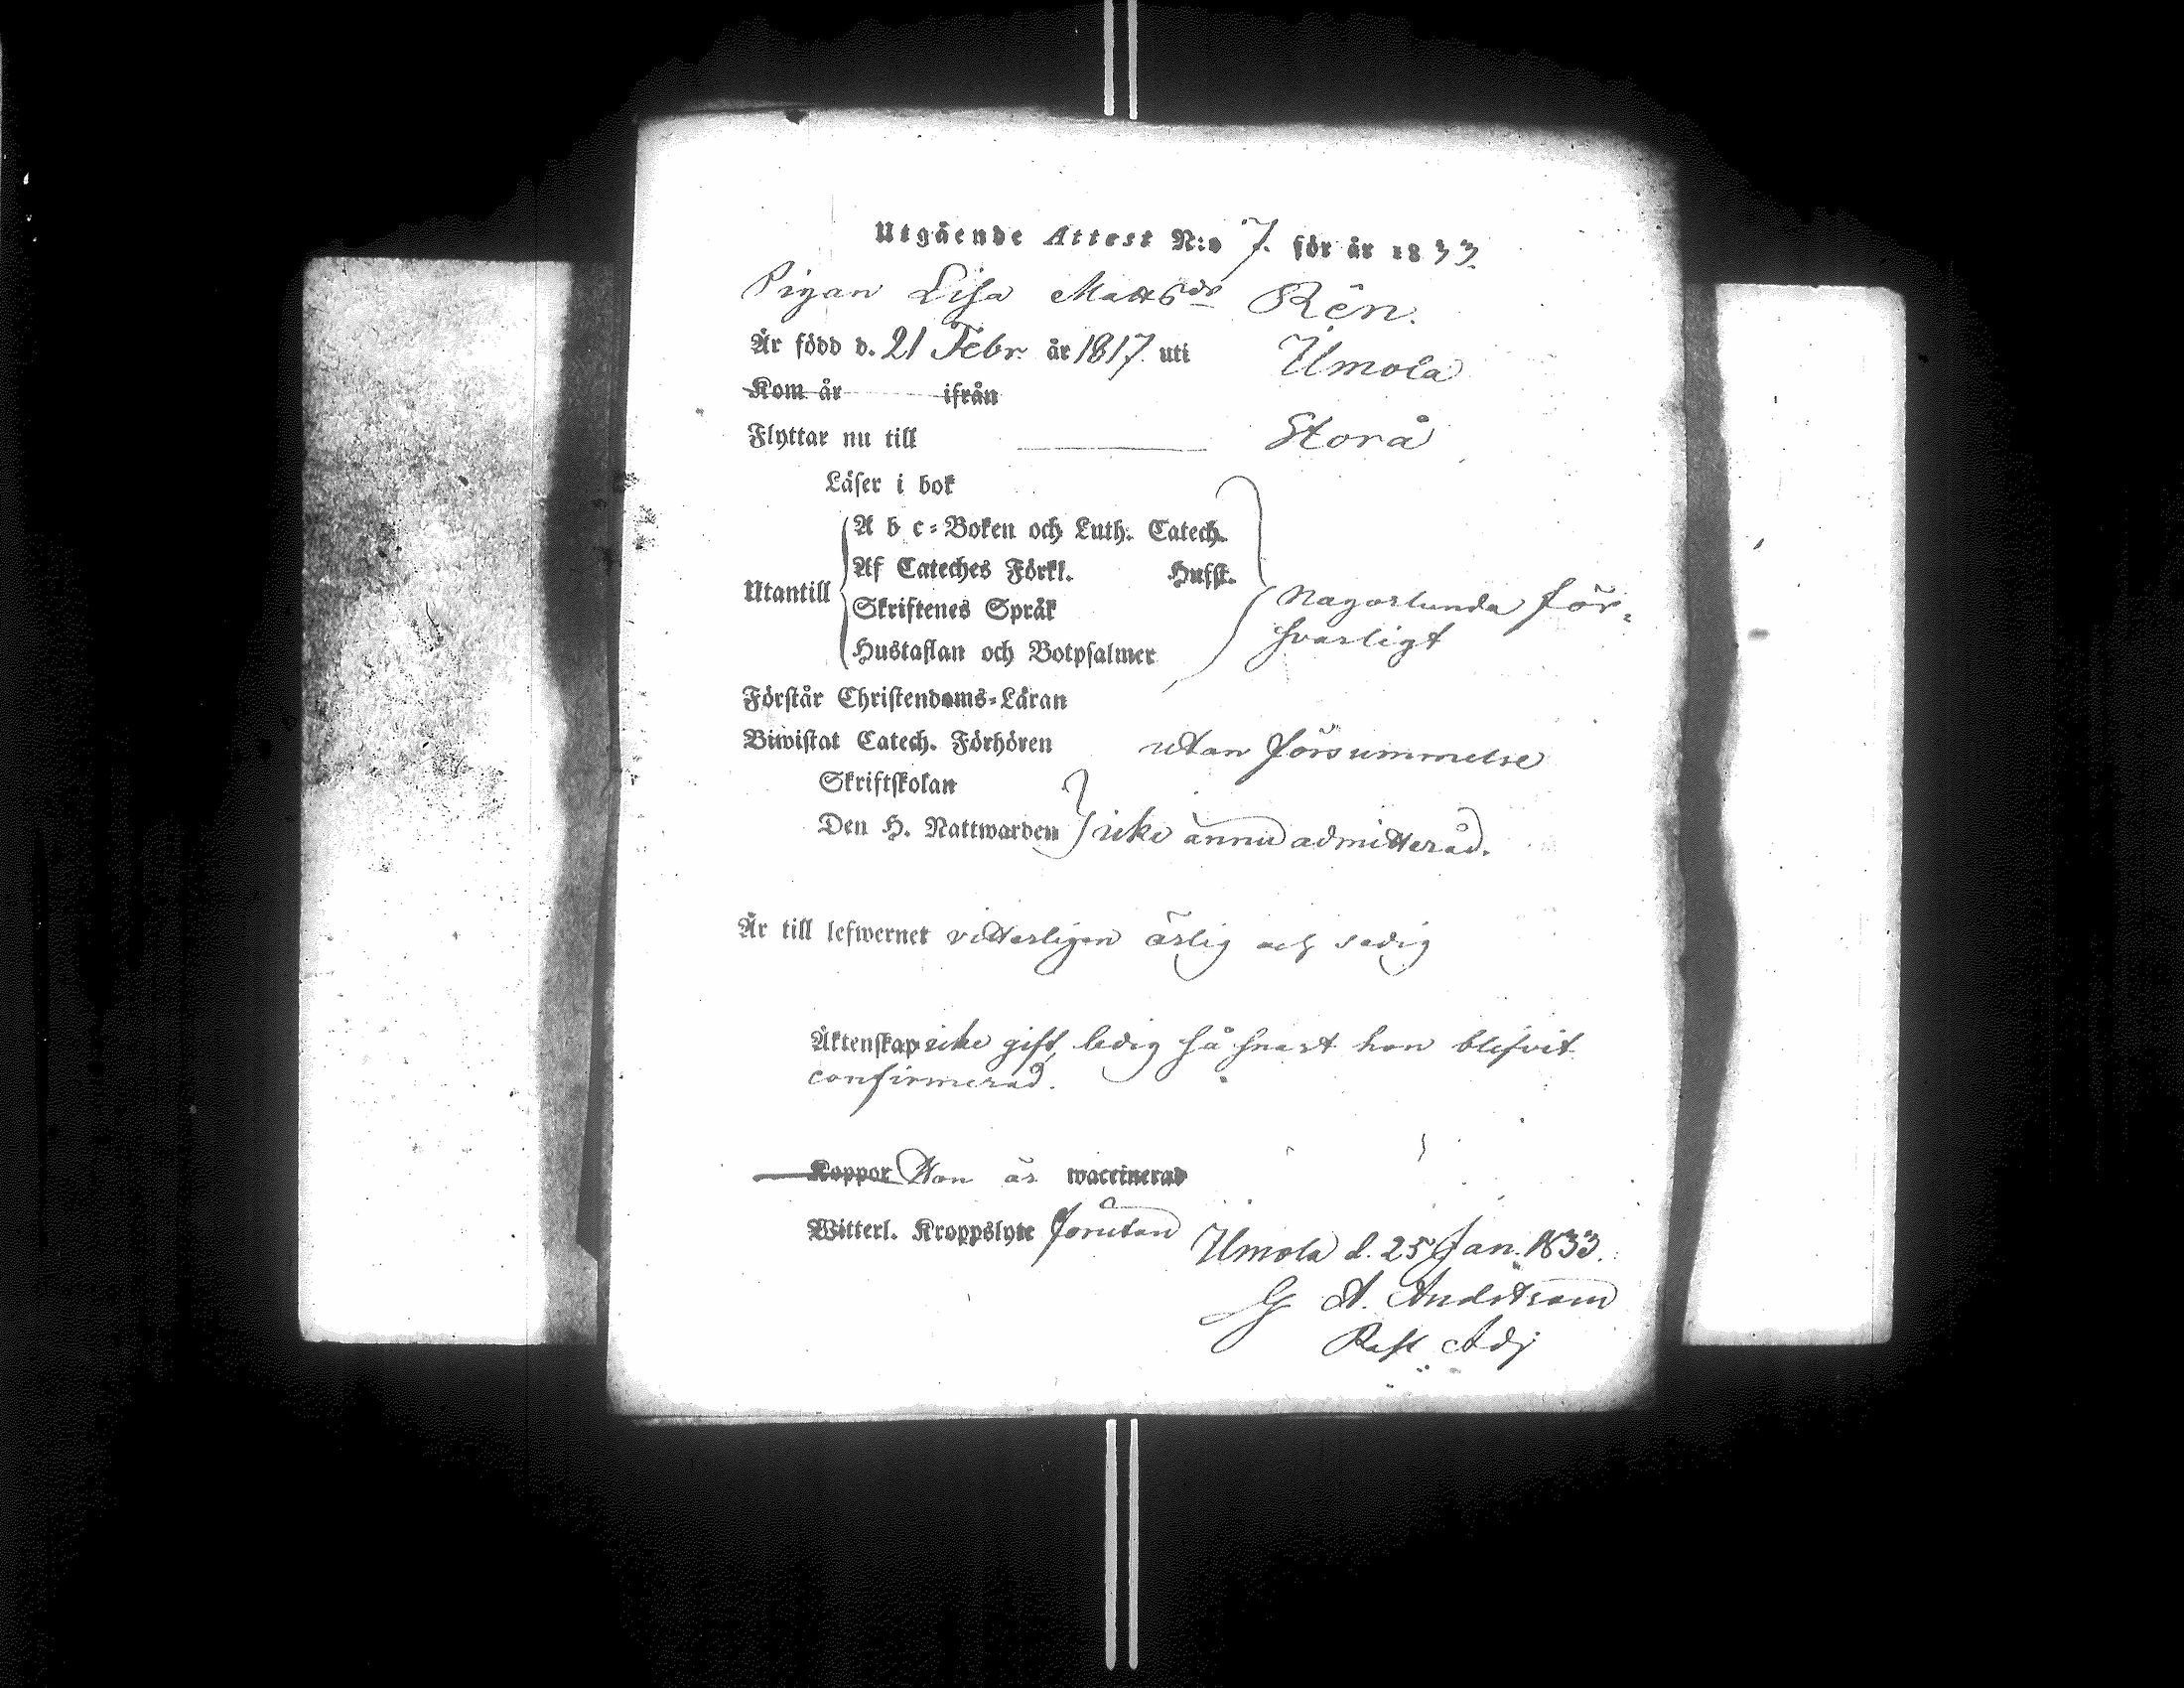 Utgående Attest N:o 7. för år 1833.
Pigan Lisa Mattsdr Rén.
Är född d. 21 Febr. år 1817. uti Ilmola
Kom år ifrån
Flyttar nu till Storå
Läser i bok
A b c-Boken och Luth. Catech.
Af Cateches Förkl. Husst.
Utantill någorlunda för-
Skriftenes Språk
svarligt
Hustaflan och Botpsalmer
Förstår Christendoms-Läran
Biwistat Catech. Förhören utan försummelse
Skriftskolan
Den H. Nattwarden icke ännu admitterad.
Är till lefwernet vitterligen ärlig och sedig
Äktenskap icke gift, ledig så snart hon blifvit
confirmerad.
Koppor Hon är waccinerad
Witterl. Kroppslyte förutan
Ilmola d. 25 Jan. 1833.
G A.
Past. Adj